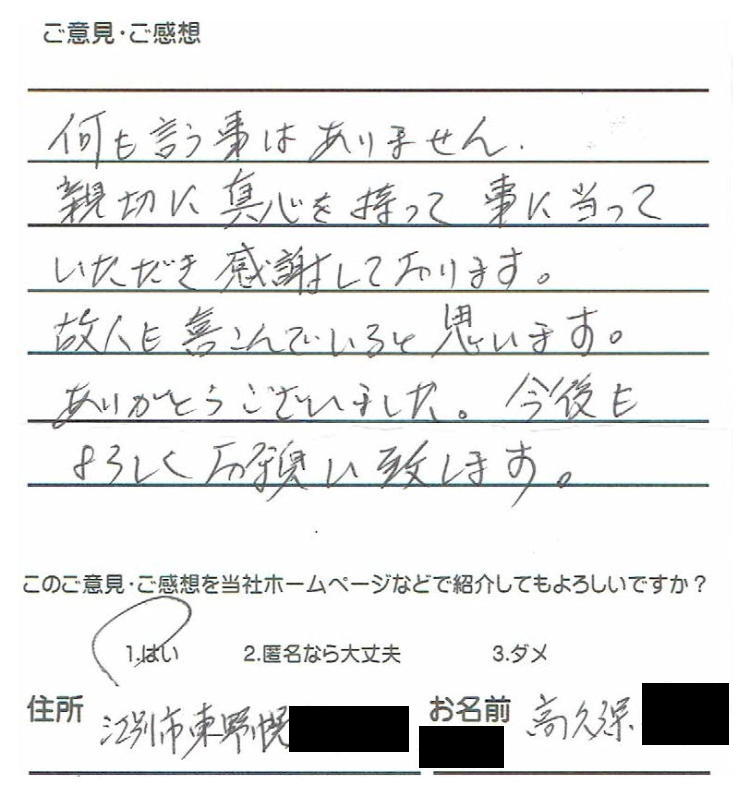 ご意見・ご感想
何も言う事はありません.
親切に真心を持って事に当って
いただき感謝しております。
故人も喜こんでいると思います。
ありがとうございました。今後も
よろしくお願い致します。
このご意見・ご感想を当社ホームページなどで紹介してもよろしいですか？
1.はい 2.匿名なら大丈夫 3.ダメ
住所 江別市東野幌 お名前 高久保